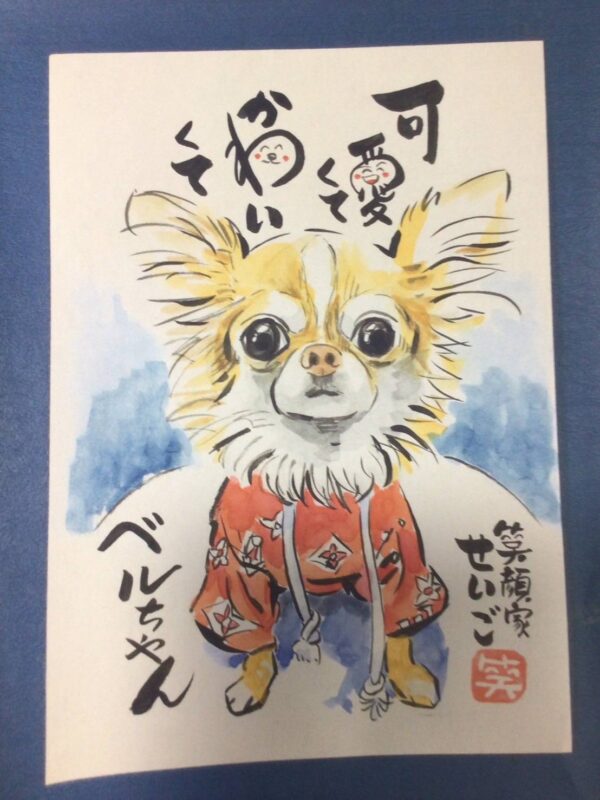 可愛くて
かわいくて
ベルちゃん
笑顔家
せいご
笑